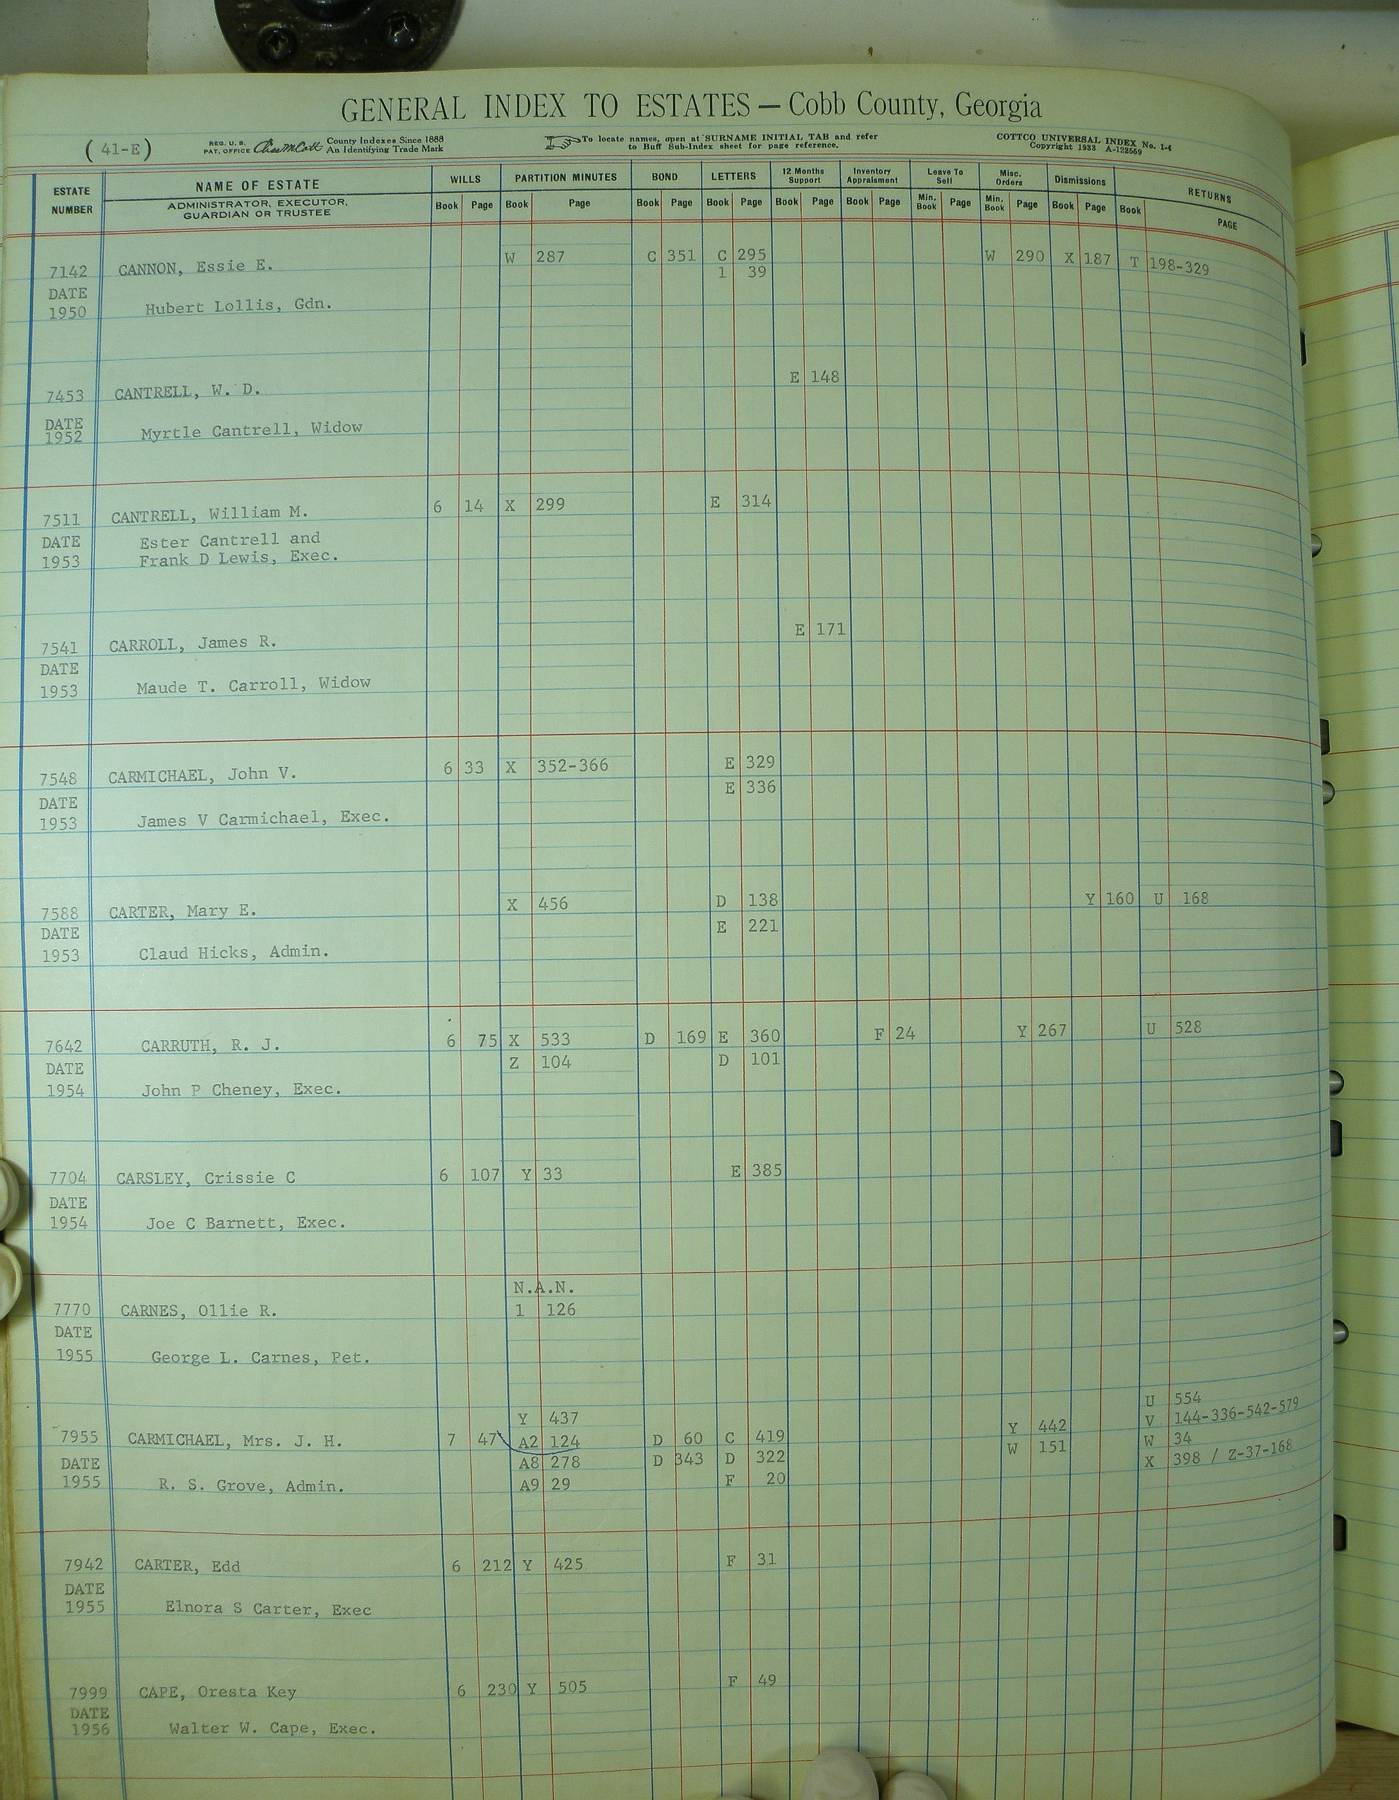 GENERAL INDEX TO ESTATES — Cobb County, Georgia
(41-E)
REG. U. S. PAT. OFFICE County Indexes Since 1888 An Identifying Trade Mark
To locate names, open at SURNAME INITIAL TAB and refer to Buff Sub-Index sheet for page reference.
COTTCO UNIVERSAL INDEX No. 1-4
Copyright 1933 A-122569
ESTATE NUMBER NAME OF ESTATE WILLS PARTITION MINUTES BOND LETTERS 12 Months Support Inventory Appraisment Leave To Sell Misc. Orders Dismissions RETURNS
ADMINISTRATOR, EXECUTOR, GUARDIAN OR TRUSTEE Book Page Book Page Book Page Book Page Book Page Book Page Min. Book Page Min. Book Page Book Page Book PAGE
7142 CANNON, Essie E. W 287 C 351 C 295 W 290 X 187 T 198-329
1 39
DATE
1950 Hubert Lollis, Gdn.
7453 CANTRELL, W. D. E 148
DATE
1952 Myrtle Cantrell, Widow
7511 CANTRELL, William M. 6 14 X 299 E 314
DATE Ester Cantrell and
1953 Frank D Lewis, Exec.
7541 CARROLL, James R. E 171
DATE
1953 Maude T. Carroll, Widow
7548 CARMICHAEL, John V. 6 33 X 352-366 E 329
E 336
DATE
1953 James V Carmichael, Exec.
7588 CARTER, Mary E. X 456 D 138 Y 160 U 168
E 221
DATE
1953 Claud Hicks, Admin.
7642 CARRUTH, R. J. 6 75 X 533 D 169 E 360 F 24 Y 267 U 528
DATE Z 104 D 101
1954 John P Cheney, Exec.
7704 CARSLEY, Crissie C 6 107 Y 33 E 385
DATE
1954 Joe C Barnett, Exec.
N.A.N.
7770 CARNES, Ollie R. 1 126
DATE
1955 George L. Carnes, Pet.
U 554
Y 437 V 144-336-542-579
7955 CARMICHAEL, Mrs. J. H. 7 47 A2 124 D 60 C 419 Y 442 W 34
DATE A8 278 D 343 D 322 W 151 X 398 / Z-37-168
1955 R. S. Grove, Admin. A9 29 F 20
7942 CARTER, Edd 6 212 Y 425 F 31
DATE
1955 Elnora S Carter, Exec
7999 CAPE, Oresta Key 6 230 Y 505 F 49
DATE
1956 Walter W. Cape, Exec.